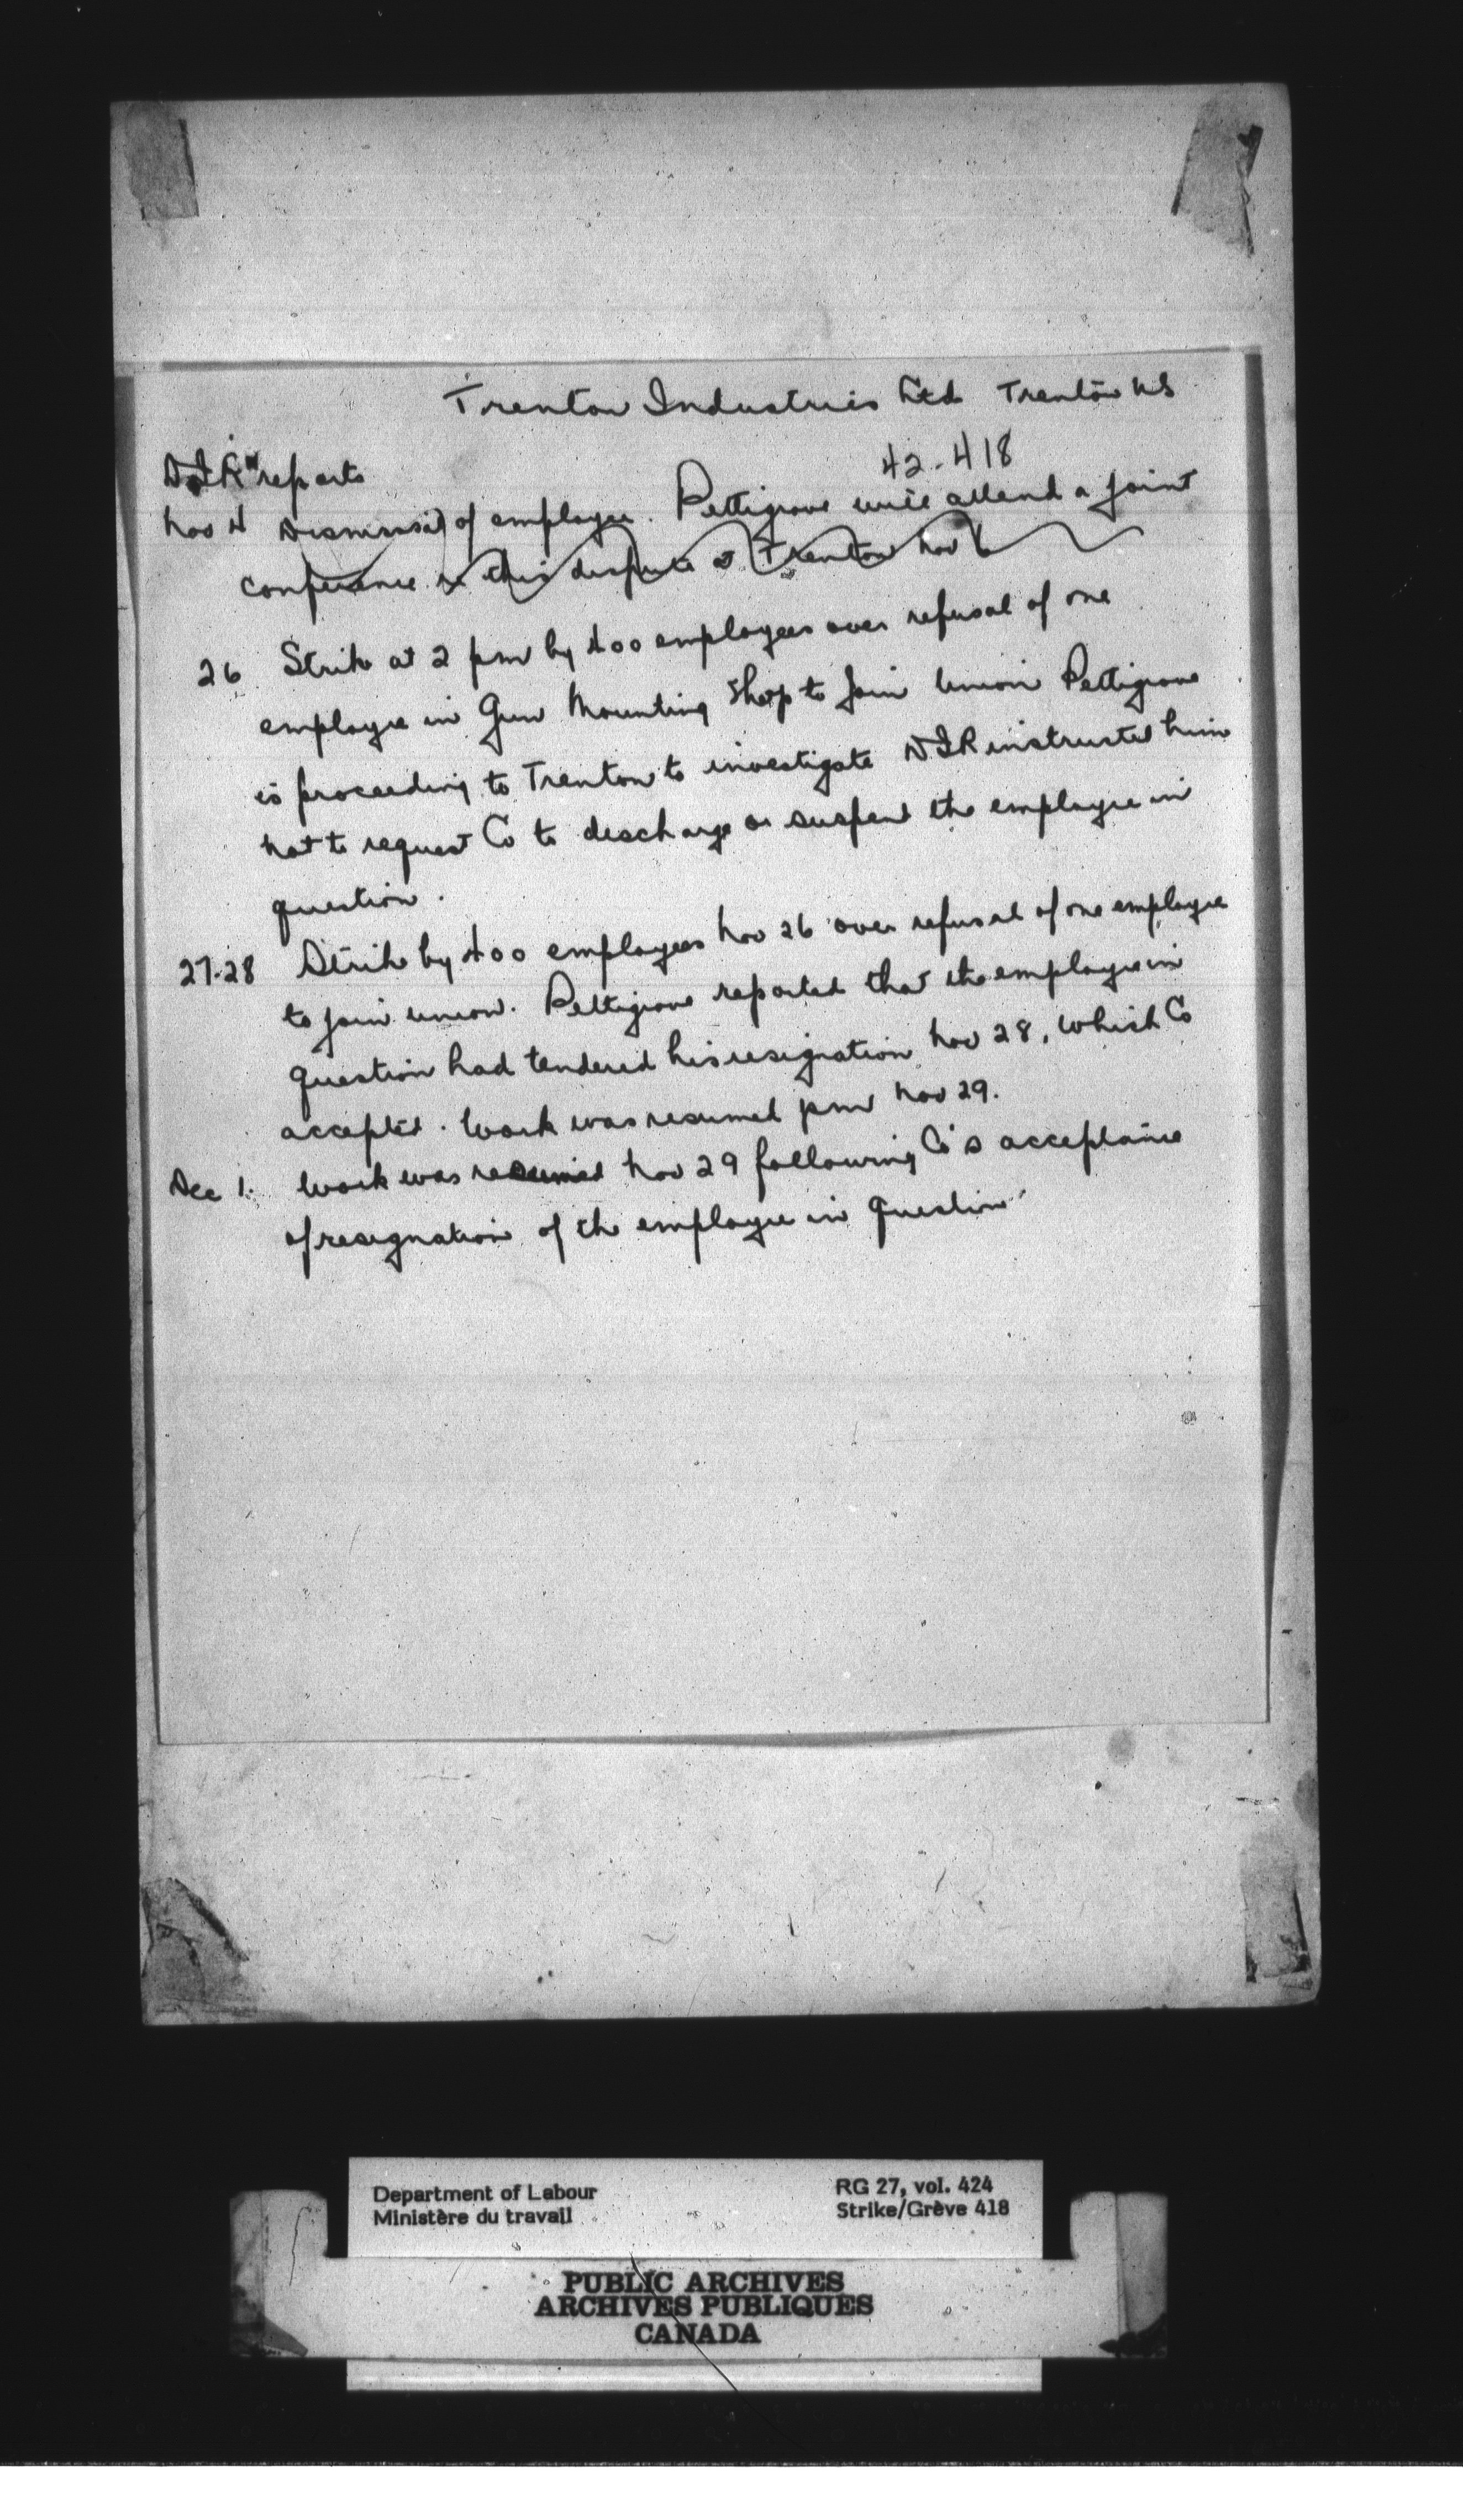 Trenton Industries Ltd Trenton NS
42-418
DIR reports
Nov 4 Dismissal of employee. Pettigrove will attend a joint
conference re this dispute at Trenton Nov 6
26 Strike at 2 pm by 400 employees over refusal of one
employee in Gun Mounting Shop to join union Pettigrove
is proceeding to Trenton to investigate DIR instructed him
not to request Co to discharge or suspend the employee in
question.
27-28 Strike by 400 employees Nov 26 over refusal of one employee
to join union. Pettigrove reported that the employee in
question had tendered his resignation Nov 28, which Co
accepted. Work was resumed pm Nov 29.
Dec 1. Work was resumed Nov 29 following Co's acceptance
of resignation of the employee in question
Department of Labour
Ministère du travail
RG 27, vol. 424
Strike/Grève 418
PUBLIC ARCHIVES
ARCHIVES PUBLIQUES
CANADA